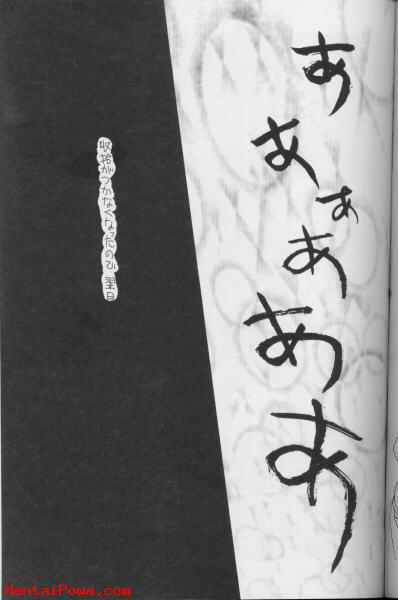 あああぁあああ
収拾がつかなくなったので翌日
HentaiPowa.com